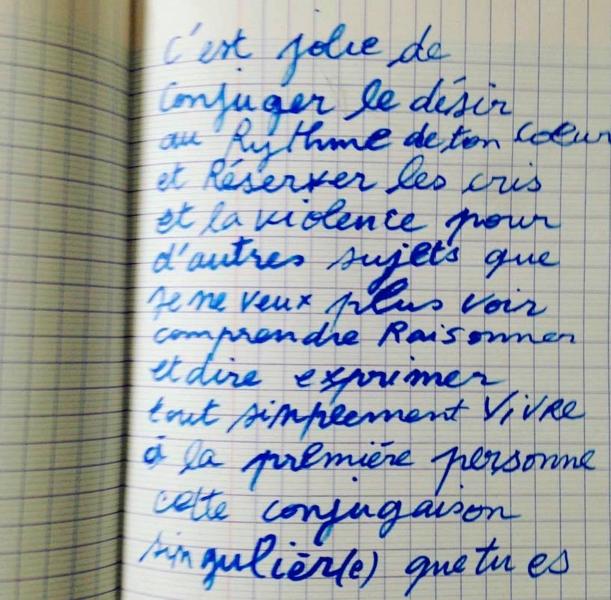 c'est jolie de
Conjuger le désir
au Rythme de ton Coeur
et Réserver les cris
et la violence pour
d'autres sujets que
je ne veux plus voir
comprendre Raisonner
et dire exprimer
tout simplement ViVRE
à la première personne
cette conjugaison
singulièr(e) que tu es